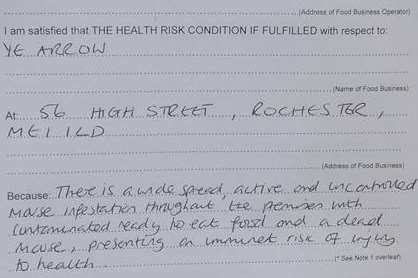 (Address of Food Business Operator)
I am satisfied that THE HEALTH RISK CONDITION IF FULFILLED with respect to:
YE ARROW
(Name of Food Business)
At: 56 HIGH STREET, ROCHESTER,
ME1 1LD
(Address of Food Business)
Because: There is a wide spread, active and uncontrolled
mouse infestation throughout the premises with
contaminated ready to eat food and a dead
mouse, presenting an imminet risk of injury
to health
(* See Note 1 overleaf)